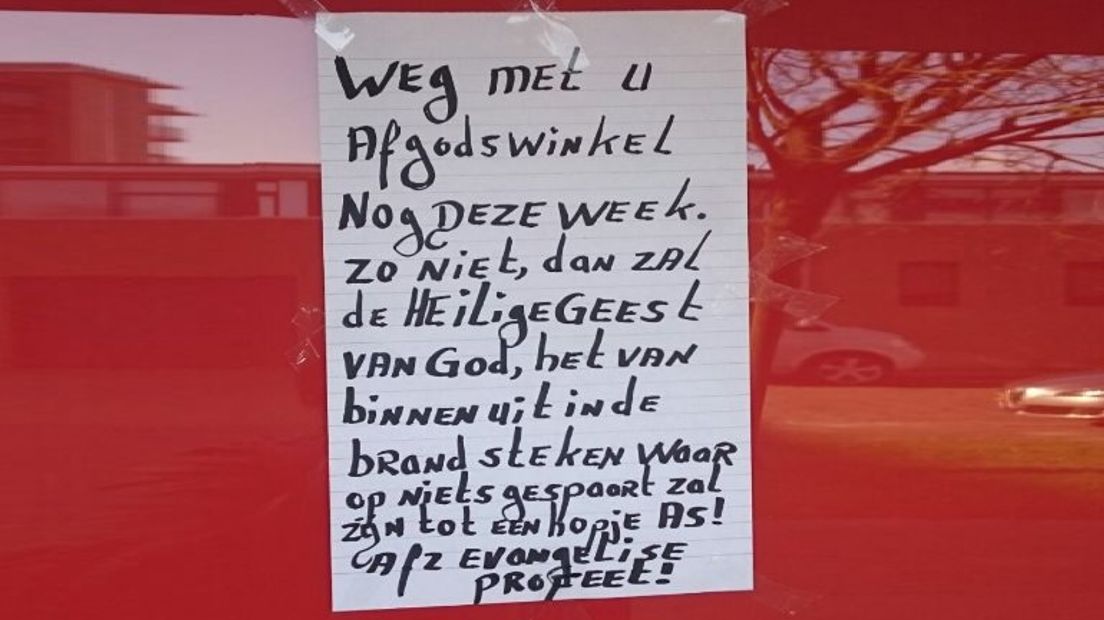 WEg met u
AfgodswinkEL
Nog DEZE WEEk.
ZO NiEt, dan ZAL
dE HEiLigEGEEst
VAN God, het VAN
binnen uit in de
brand stEkEN Waar
op niEts gespaart zal
zijn tot EEN hopje As!
Afz EvangElisE
profEEt!